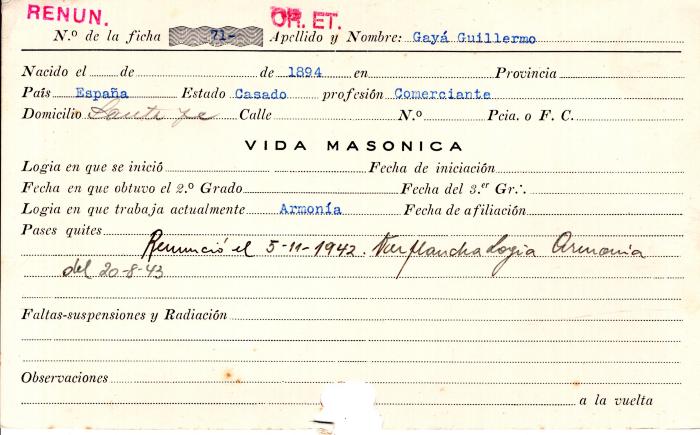 RENUN. OR. ET.
N.º de la ficha 71- Apellido y Nombre: Gayá Guillermo
Nacido el de de 1894 en Provincia
País España Estado Casado profesión Comerciante
Domicilio Santa Fe Calle N.º Pcia. o F. C.
VIDA MASONICA
Logia en que se inició Fecha de iniciación.
Fecha en que obtuvo el 2.º Grado Fecha del 3.er Gr∴
Logia en que trabaja actualmente Armonía Fecha de afiliación.
Pases quites
Renunció el 5-11-1942. Logia Armonia
del 20-8-43
Faltas-suspensiones y Radiación
Observaciones
a la vuelta